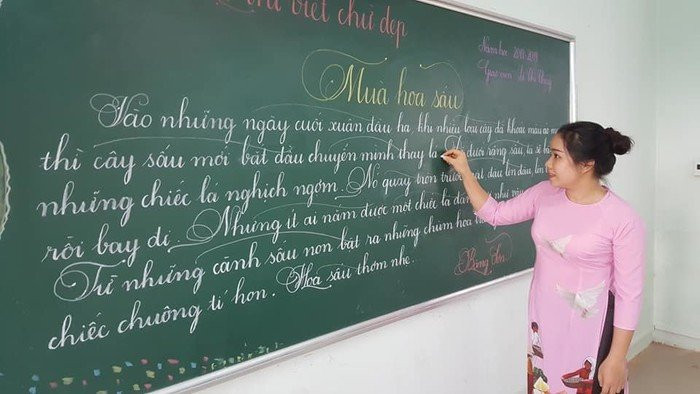 viết chữ đẹp
Năm học
Giáo viên
Mùa hoa sấu
Vào những ngày cuối xuân đầu hạ, khi nhiều loài cây đã khoác màu áo
thì cây sấu mới bắt đầu chuyển mình thay lá. dưới rặng sấu, ta sẽ
những chiếc lá nghịch ngợm. Nó quay tròn trước đầu lên
rồi bay đi. Nhưng ít ai nắm được một chiếc lá đang như
Từ những cành sấu non bật ra những chùm hoa
chiếc chuông tí hon. Hoa sấu thơm nhẹ.